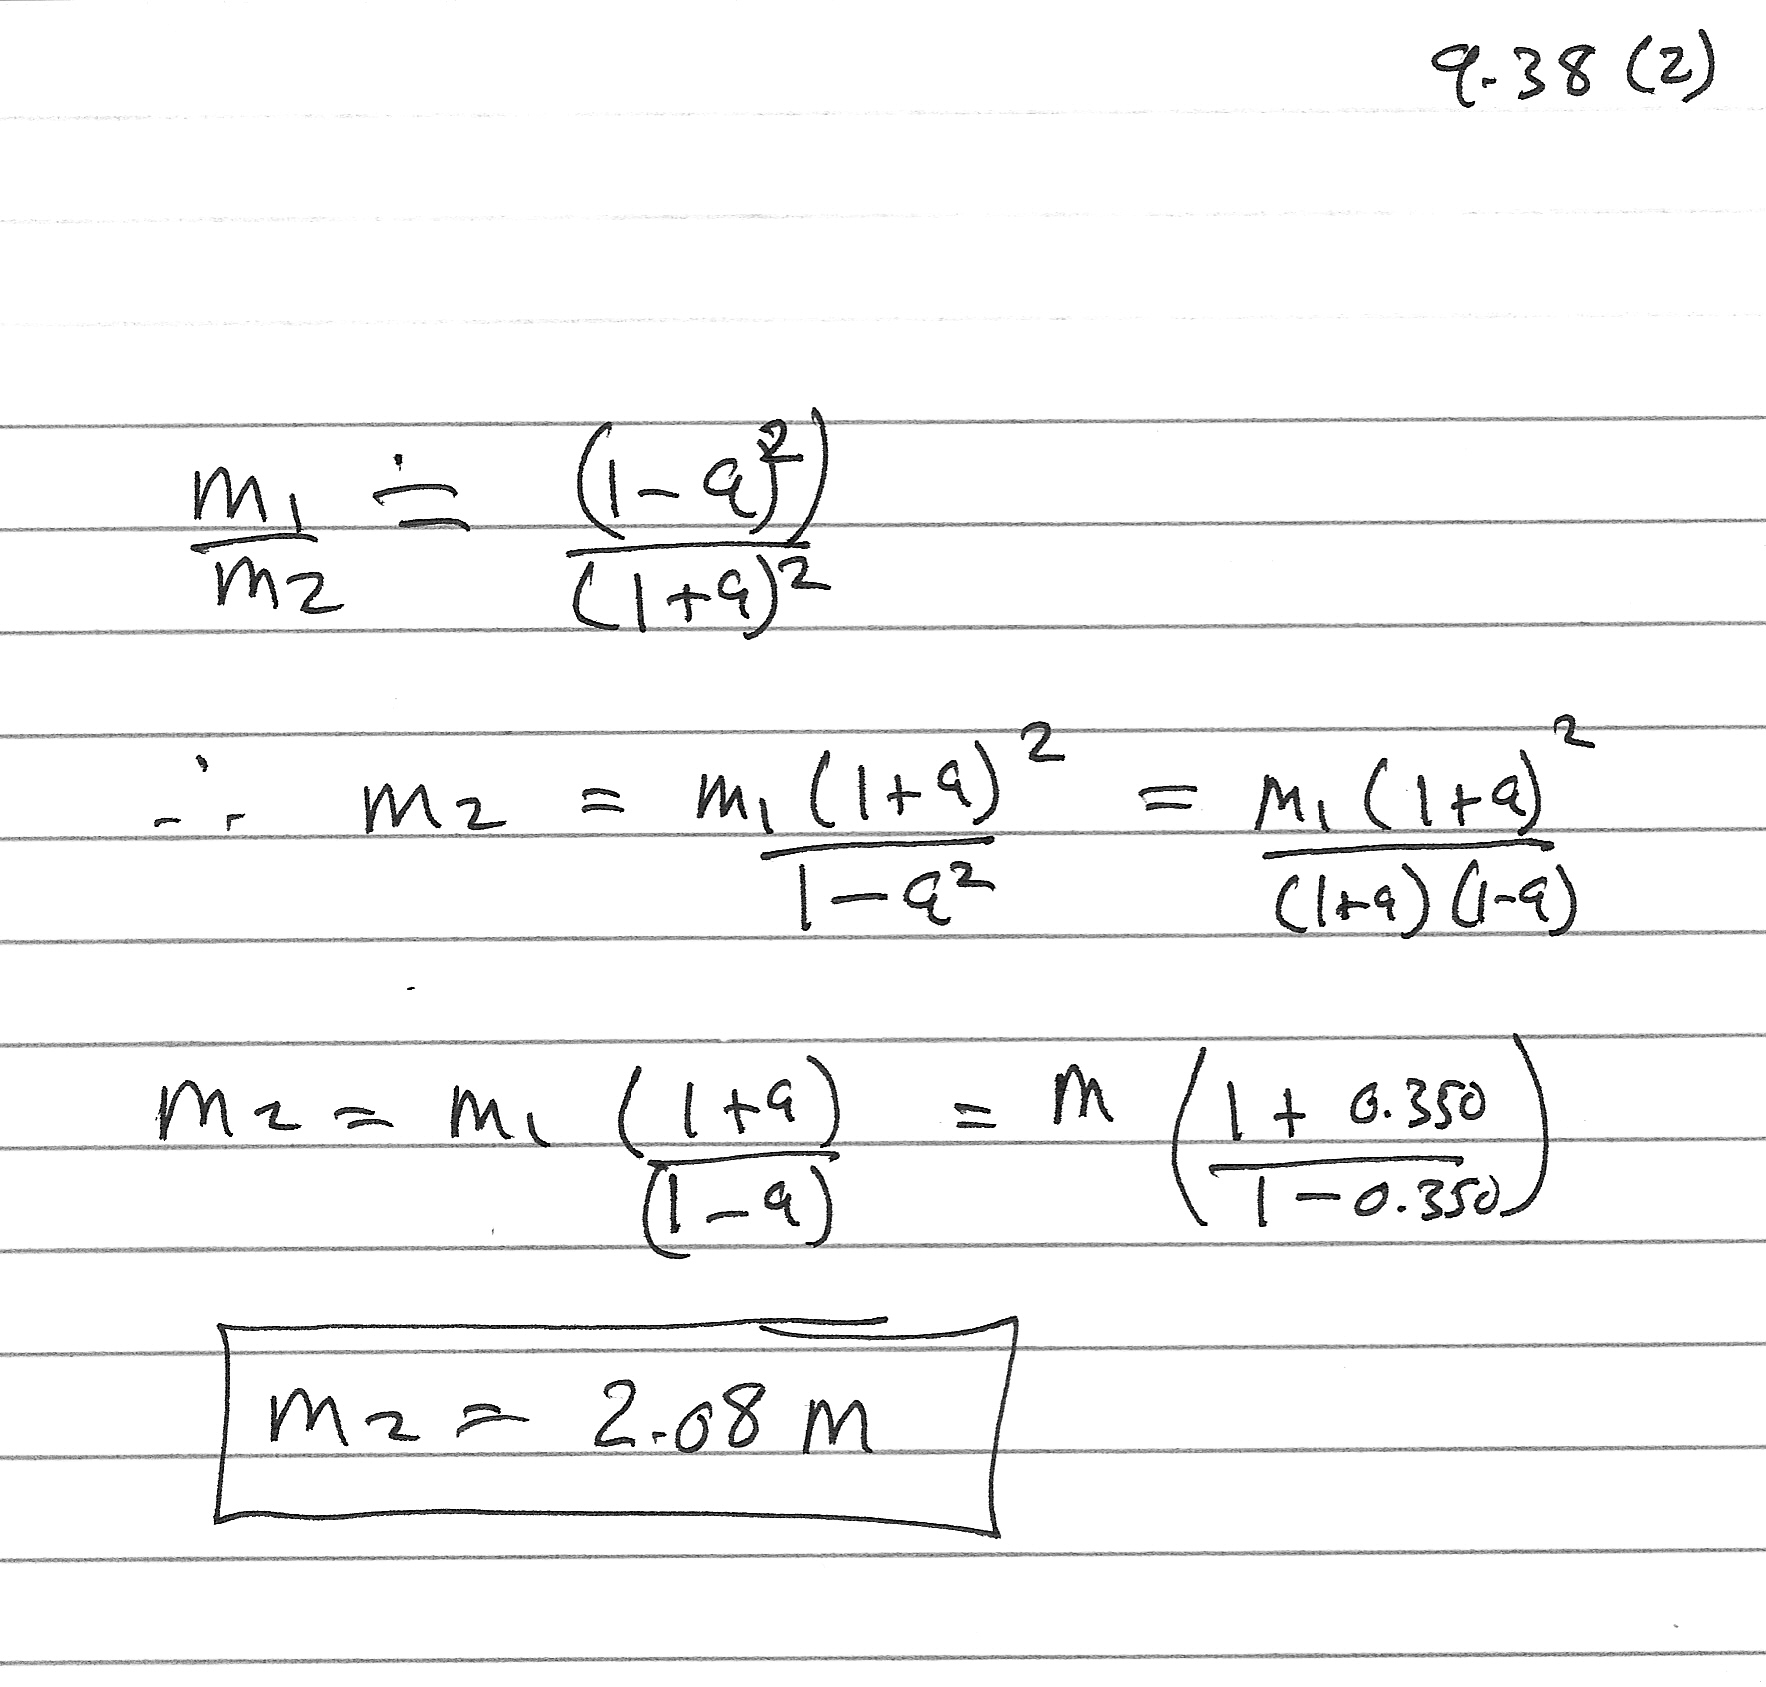 9.38 (2)
m₁/m₂ = (1-a²)/(1+a)²
∴ m₂ = m₁(1+a)²/(1-a²) = m₁(1+a)²/((1+a)(1-a))
m₂ = m₁ (1+a)/(1-a) = m ((1+0.350)/(1-0.350))
m₂ = 2.08 m